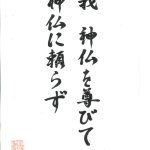 我 神仏を尊びて
神仏に頼らず